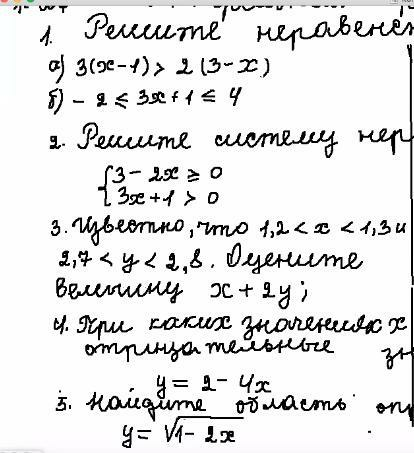 1. Решите неравенст
а) 3(x-1) > 2(3-x)
б) -2 ≤ 3x+1 ≤ 4
2. Решите систему нер
{3-2x ≥ 0
3x+1 > 0
3. Известно, что 1,2 < x < 1,3 и
2,7 < y < 2,8. Оцените
величину x + 2y;
4. При каких значениях x
отрицательные зн
y = 2-4x
5. Найдите область оп
y = √1-2x